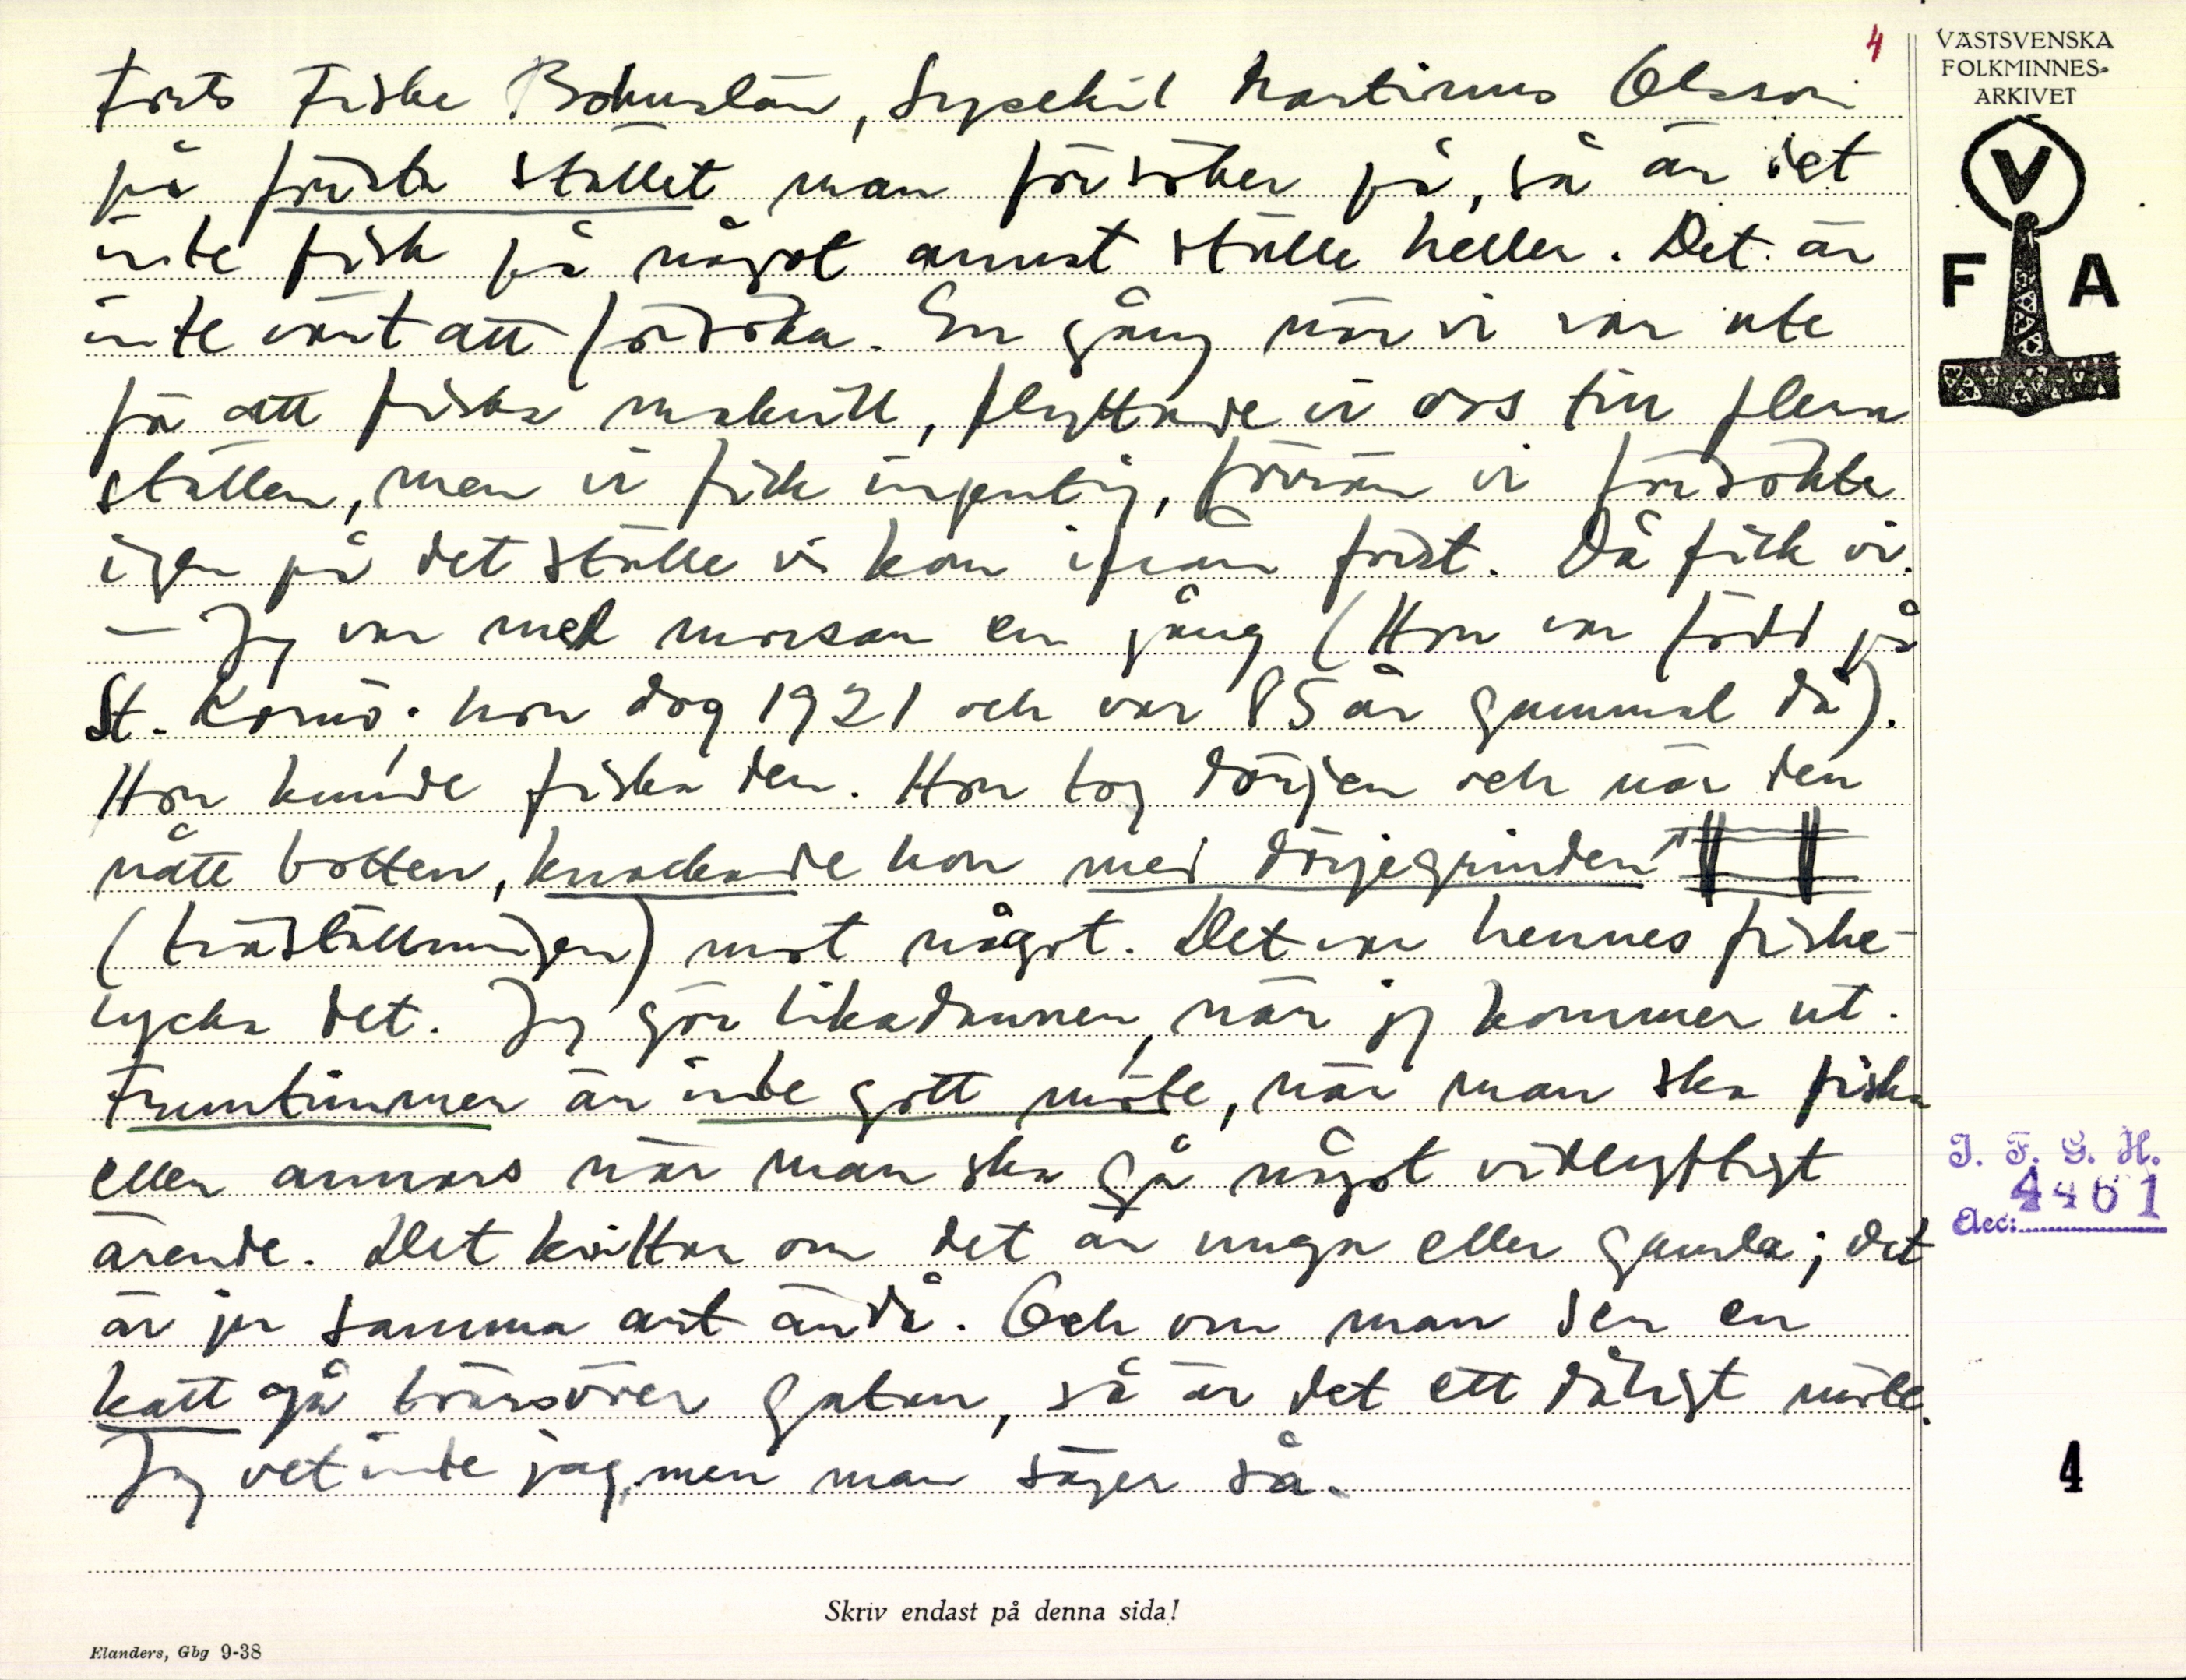 4
VÄSTSVENSKA
FOLKMINNES-
ARKIVET
V
F A
Forts Fiske Bohuslän, Lysekil Martinus Olsson
på första stället man försöker på, så är det
inte fisk på något annat ställe heller. Det är
inte värt att försöka. En gång när vi var ute
för att fiska makrill, flyttade vi oss till flera
ställen, men vi fick ingenting, förrän vi försökte
igen på det ställe vi kom ifrån först. Då fick vi.
— Jag var med morsan en gång (Hon var född på
St. Kornö; hon dog 1921 och var 85 år gammal då).
Hon kunde fiska den. Hon tog dörjen och när den
nått botten, knackade hon med dörjegrinden
(träställningen) mot något. Det var hennes fiske-
lycka det. Jag gör likadannen, när jag kommer ut.
Fruntimmer är inte gott möte, när man ska fiska
eller annars när man ska gå något vidlyftigt
ärende. Det kvittar om det är unga eller gamla; det
är ju samma art ändå. Och om man ser en
katt gå tvärsöver gatan, så är det ett dåligt möte.
Jag vet inte jag, men man säger så.
I. F. G. H.
Acc: 4461
4
Skriv endast på denna sida!
Elanders, Gbg 9-38